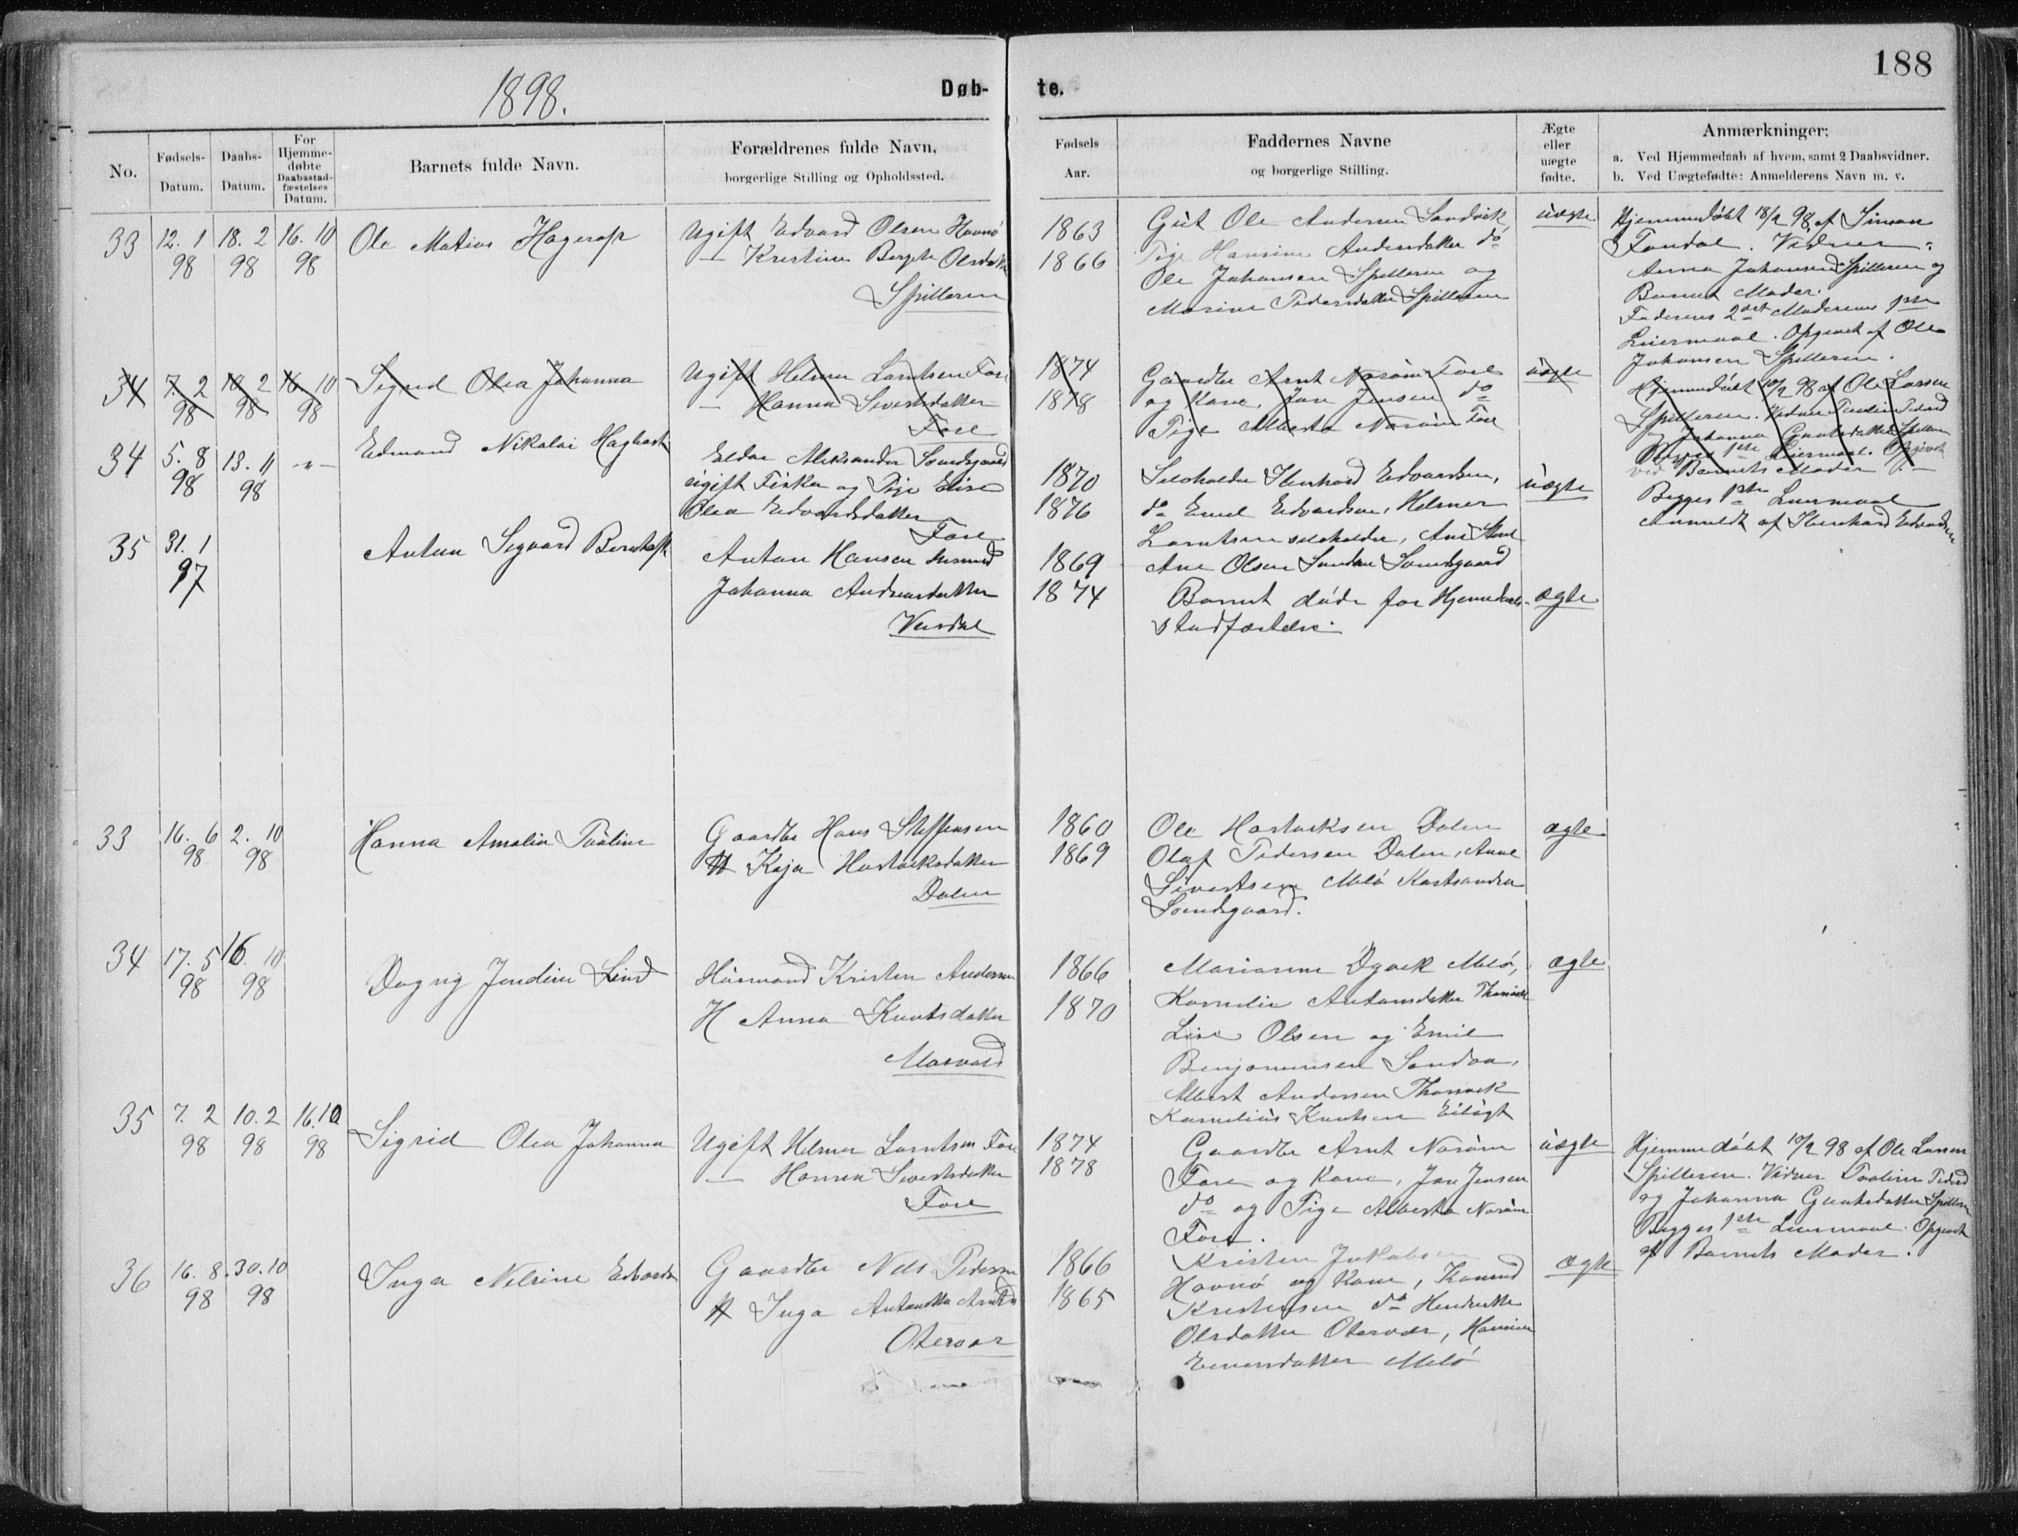 188
1898.
Døb-
te.
No.
Fødsels-
Datum.
Daabs-
Datum.
For
Hjemme-
døbte
Daabsstad-
fæstelses
Datum.
Barnets fulde Navn.
Forældrenes fulde Navn,
borgerlige Stilling og Opholdssted.
Fødsels
Aar.
Faddernes Navne
og borgerlige Stilling.
Ægte
eller
uægte
fødte.
Anmærkninger:
a. Ved Hjemmedaab af hvem, samt 2 Daabsvidner.
b. Ved Uægtefødte: Anmelderens Navn m. v.
33
12. 1
98
18. 2
98
16. 10
98
Ole Matias Hagerup
Ugift Edvard Olsen Havnø
— Kristine Bergete Olsdatter
Spilleren
1863
1866
Gut Ole Andersen Sandvik
Pige Hansine Andersdatter do
Ole Johansen Spilleren og
Marine Pedersdatter Spilleren
uægte
Hjemmedøbt 18/2 98 af Simon
Fondal. Vidner:
Anna Johansen Spilleren og
Barnets Moder.
Faderens 2det Moderens 1ste
Leiermaal. Opgivet af Ole
Johansen Spilleren.
34
7. 2
98
10. 2
98
16. 10
98
Sigrid Olea Johanna
Ugift Helmer Lorntsen Fore
— Hanna Sivertsdatter
Fore
1874
1878
Gaardbr Arnt Norøim Fore
og Kone, Jon Jensen do
Pige Alberta Norøim Fore
uægte
Hjemmedøbt 10/2 98 af Ole Larsen
Spilleren. Vidner
og Johanna Spilleren
1ste Leiermaal. Opgivet
ved Barnets Moder
34
5. 8
98
13. 11
98
-"-
Edmund Nikolai Hagbart
Eldar Aleksander Sondsgaard
ugift Fisker og Pige Elise
Olea Edvardsdatter
Fore
1870
1876
Selvholder Stenhard Edvardsen,
do Emil Edvardsen, Helmer
Lorntsen selvholder, Ane
Ane Olsen Sondsgaard
uægte
Begges 1ste Leiermaal
Anmeldt af Stenhard Edvardsen
35
31. 1
97
Anton Sigvard Bernhoft
Anton Hansen Husmand
Johanna Andreasdatter
Værdal
1869
1874
Barnet døde før Hjemmedaab-
stadfæstelse.
ægte
33
16. 6
98
2. 10
98
Hanna Amalia Paaline
Gaardbr Hans Steffensen
H Kaja Hartviksdatter
Dalen
1860
1869
Ole Hartviksen Dalen
Olaf Pedersen Dalen, Anne
Sivertsen Melø
Sondsgaard.
ægte
34
17. 5
98
16. 10
98
Dagny Jendine Lind
Husmand Kristen Andersen
H Anna Knutsdatter
Marvold
1866
1870
Marianne Dgvik Melø,
Kornelie Antonsdatter Thorsvik
Lise Olsen og Emil
Benjaminsen Sandaa,
Albert Andersen Thorsvik
Kornelius Knutsen
ægte
35
7. 2
98
10. 2
98
16. 10
98
Sigrid Olea Johanna
Ugift Helmer Lorntsen Fore
— Hanna Sivertsdatter
Fore
1874
1878
Gaardbr Arnt Norøim
Fore og Kone, Jon Jensen
do og Pige Alberta Norøim
Fore.
uægte
Hjemmedøbt 10/2 98 af Ole Larsen
Spilleren. Vidner Paaline Pedersd
og Johanna Spilleren
Begges 1ste Leiermaal. Opgivet
af Barnets Moder.
36
16. 8.
98
30. 10
98
Inga Nelsine Edvarda
Gaardbr Nels Pedersen
H Inga Antonette Arntsd
Otervær
1866
1865
Kristen Jakobsen
Havnø og Kone, Konrad
Kristensen do Hendrikke
Olsdatter Otervær, Hansine
Evensdatter Melø
ægte